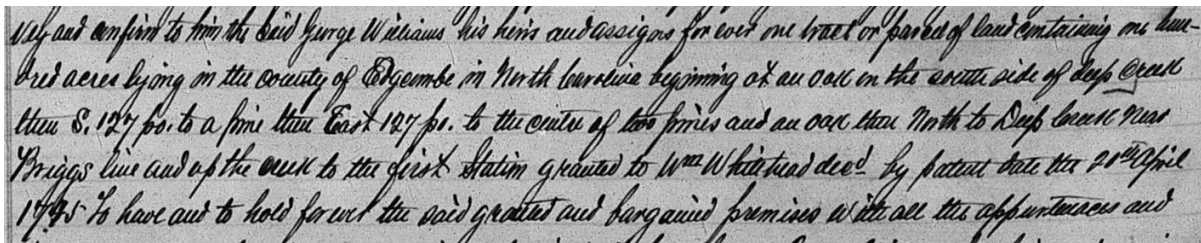 vey and confirm to him the Said George Williams his heirs and assigns for ever one tract or parcel of land containing one hun-
dred acres lying in the county of Edgcombe in North Carolina beginning at an oak in the south side of deep Creek
then S. 127 po. to a pine then East 127 po. to the centre of two pines and an oak then North to Deep Creek near
Briggs line and up the creek to the first Station granted to Wm Whitehead decd. by patent date the 20th April
1745 To have and to hold forever the said granted and bargained premises with all the appurtenaces and